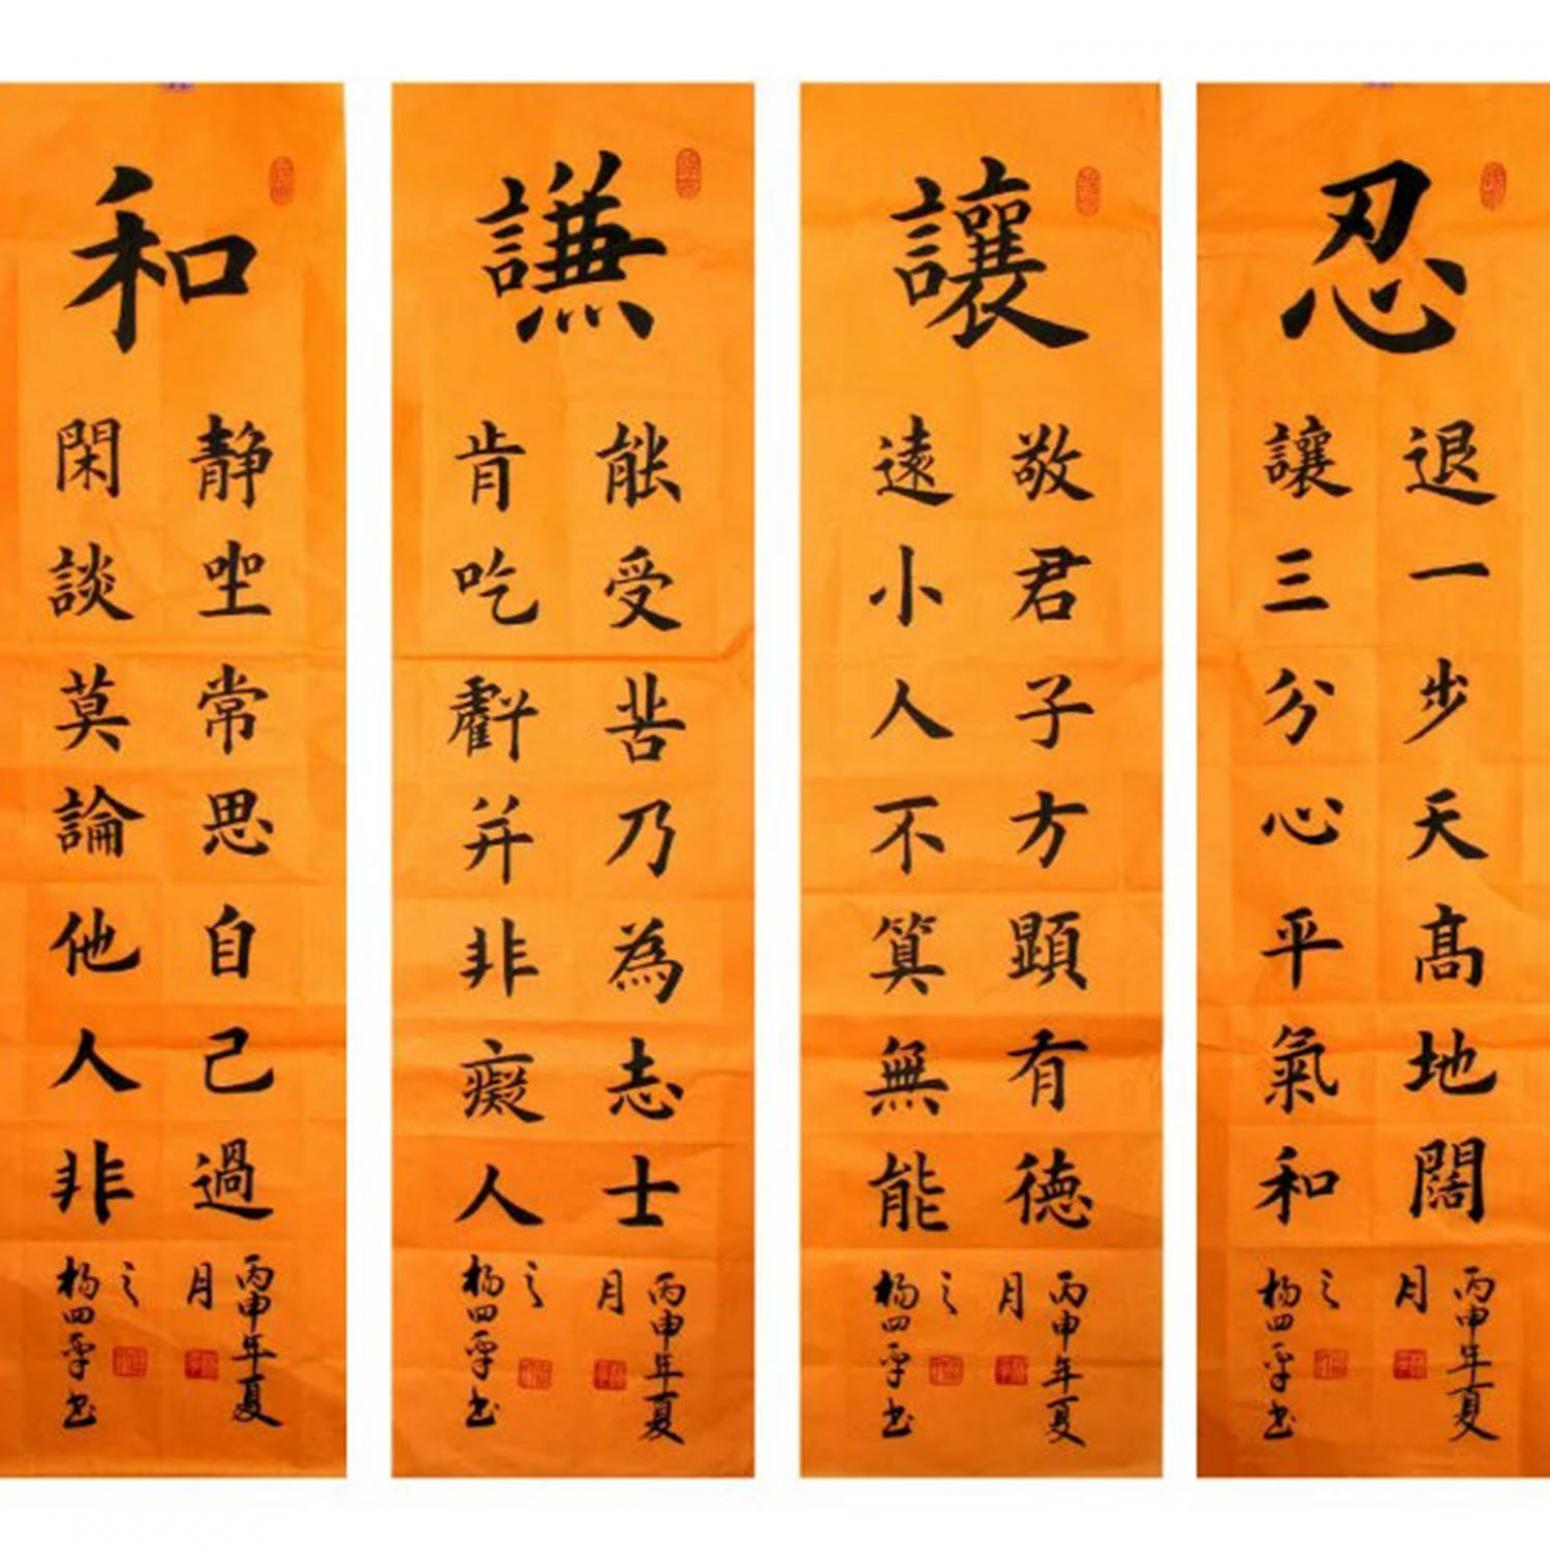 忍
退一步天髙地闊
讓三分心平氣和
丙申年夏
月
之
杨四平书
讓
敬君子方顕有德
遠小人不算無能
丙申年夏
月
之
杨四平书
謙
能受苦乃為志士
肯吃虧并非癡人
丙申年夏
月
之
杨四平书
和
靜坐常思自己過
閑談莫論他人非
丙申年夏
月
之
杨四平书